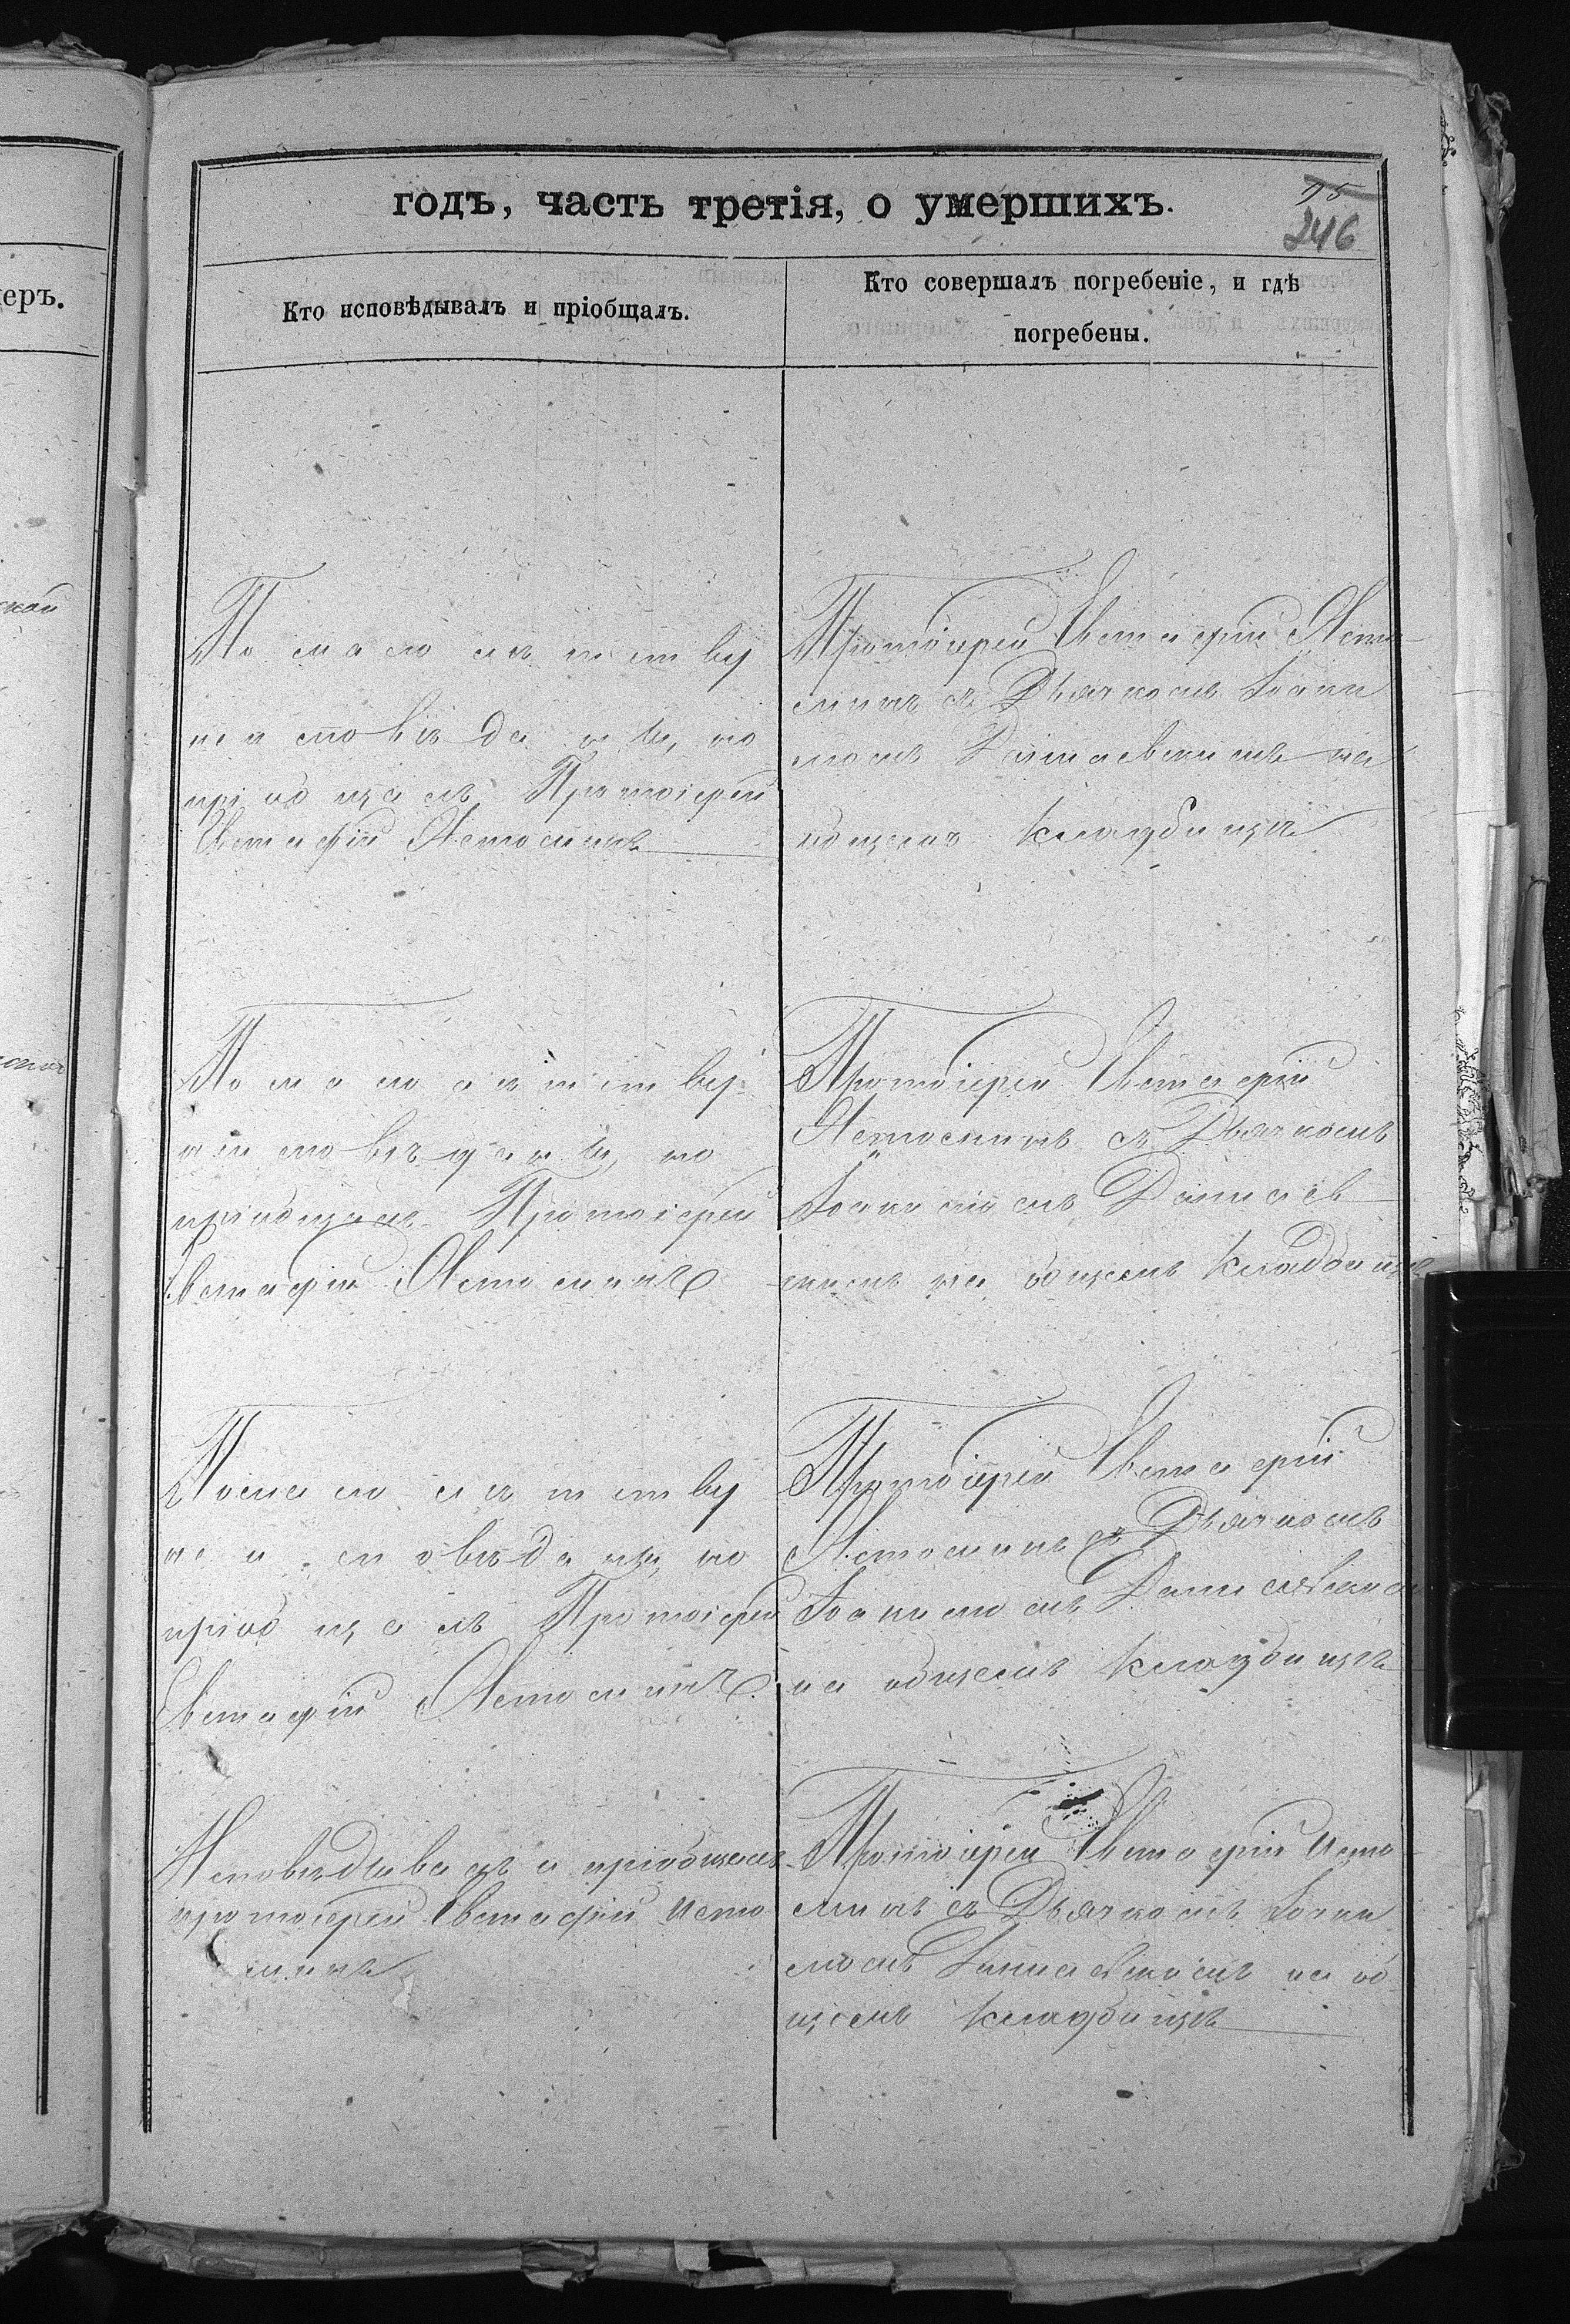 меръ.
годъ, часть третія, о умершихъ.
95
246
Кто исповѣдывалъ и пріобщалъ.
Кто совершалъ погребеніе, и гдѣ
погребены.
По малолѣтству
не исповѣданъ, но
пріобщалъ Протоіерей
Евстафій Истоминъ
Протоіерей Евстафій Исто
минъ съ Дьячкомъ Іоаки
момъ на
общемъ кладбищѣ
По малолѣтству
не исповѣданъ, но
пріобщалъ Протоіерей
Евстафій Истоминъ
Протоіерей Евстафій
Истоминъ съ Дьячкомъ
Іоакимомъ
на общемъ кладбищѣ
По малолѣтству
не исповѣданъ, но
пріобщалъ Протоіерей
Евстафій Истоминъ
Протоіерей Евстафій
Истоминъ съ Дьячкомъ
Іоакимомъ
на общемъ кладбищѣ
Исповѣдывалъ и пріобщалъ
протоіерей Евстафій Исто
минъ
Протоіерей Евстафій Исто
минъ съ Дьячкомъ Іоаки
момъ на об
щемъ кладбищѣ